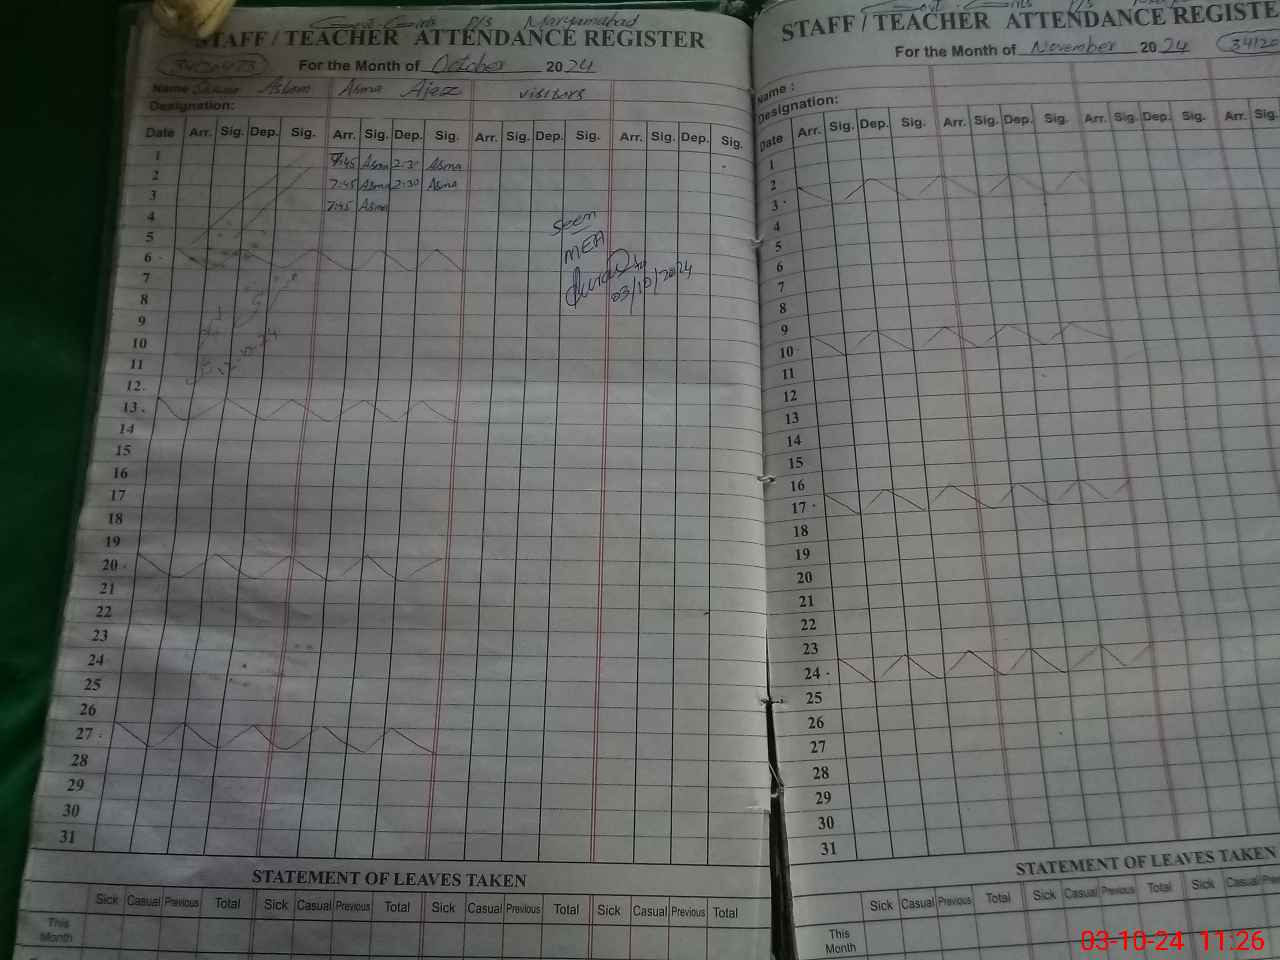 Govt. Girls P/S Maryamabad
STAFF / TEACHER ATTENDANCE REGISTER
For the Month of October 2024
Name Aslam Asma Ajaz visitors
Designation:
Date Arr. Sig. Dep. Sig. Arr. Sig. Dep. Sig. Arr. Sig. Dep. Sig. Arr. Sig. Dep. Sig.
1 7:45 Asma 2:30 Asma
2 7:45 Asma 2:30 Asma
3 7:45 Asma
4
5
6
7
8
9
10
11
12
13
14
15
16
17
18
19
20
21
22
23
24
25
26
27
28
29
30
31
Seen
MEA
03/10/2024
STATEMENT OF LEAVES TAKEN
Sick Casual Previous Total Sick Casual Previous Total Sick Casual Previous Total Sick Casual Previous Total
This
Month
STAFF / TEACHER ATTENDANCE REGISTE
For the Month of November 2024
Name :
Designation:
Date Arr. Sig. Dep. Sig. Arr. Sig. Dep. Sig. Arr. Sig. Dep. Sig. Arr. Sig.
1
2
3
4
5
6
7
8
9
10
11
12
13
14
15
16
17
18
19
20
21
22
23
24
25
26
27
28
29
30
31
STATEMENT OF LEAVES TAKEN
Sick Casual Previous Total Sick Casual Previous Total Sick Casual
This
Month
03-10-24 11:26